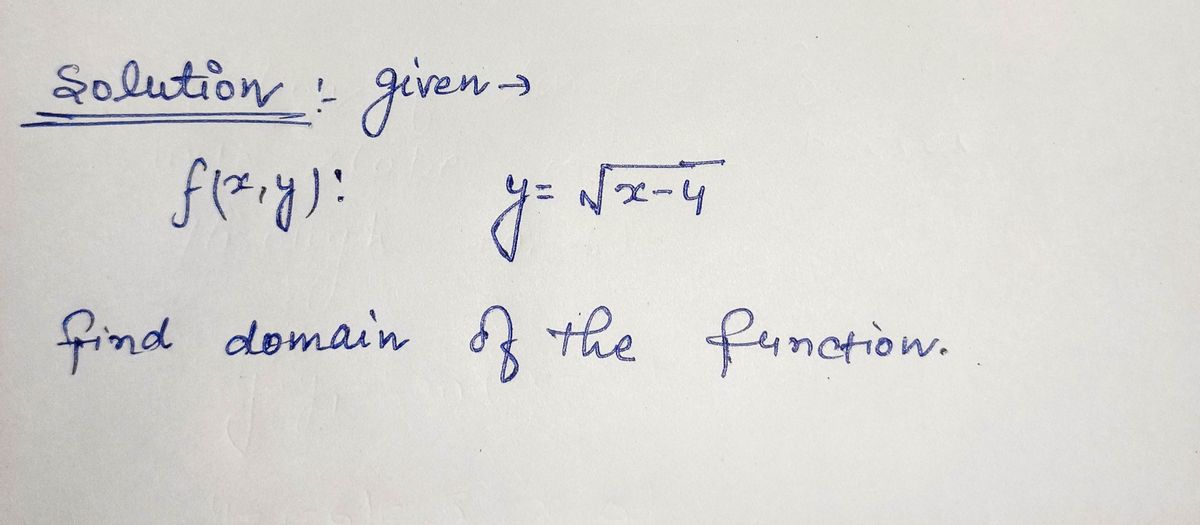 Solution :- given →
f(x,y): y= √x-4
find domain of the function.